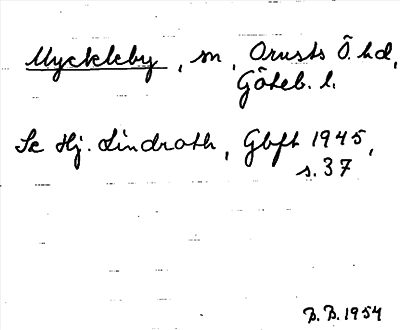 Myckleby, sn, Orusts Ö. hd,
Göteb. l.
Se Hj. Lindroth, Gbft 1945,
s. 37
B.B. 1954